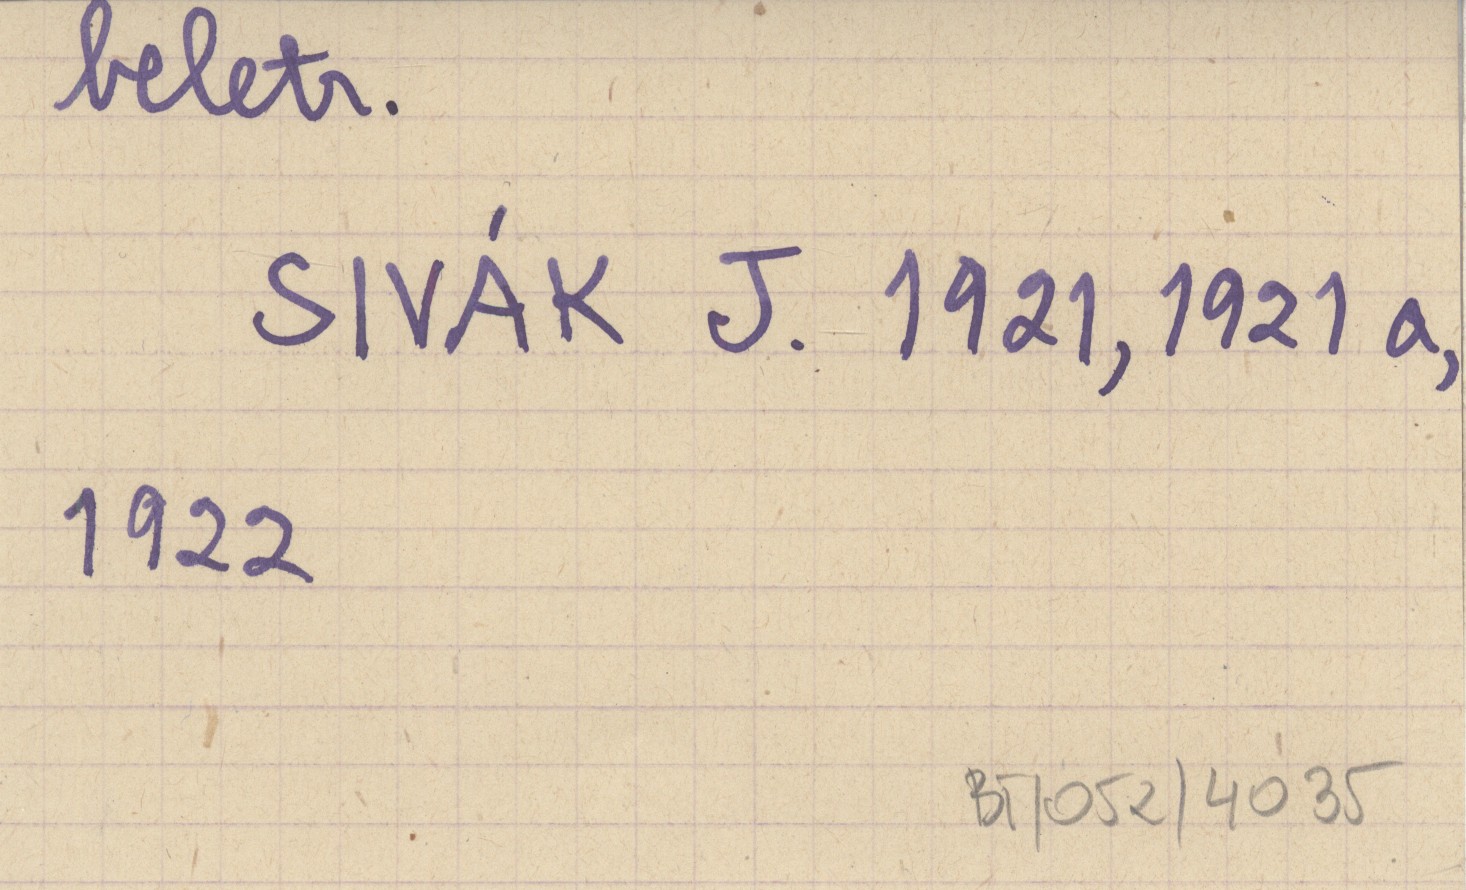 beletr.
SIVÁK J. 1921, 1921 a,
1922
BT/052/4035